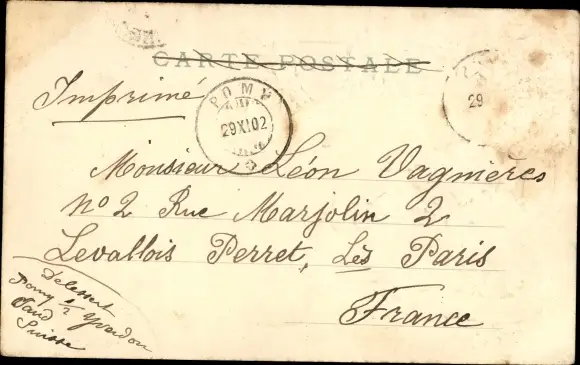 CARTE POSTALE
Imprimé
POMY
29 XI 02
29
Monsieur Léon Vagnières
No 2 Rue Marjolin 2
Levallois Perret, Lès Paris
France
Delessert
Pomy s/ Yverdon
Vaud
Suisse